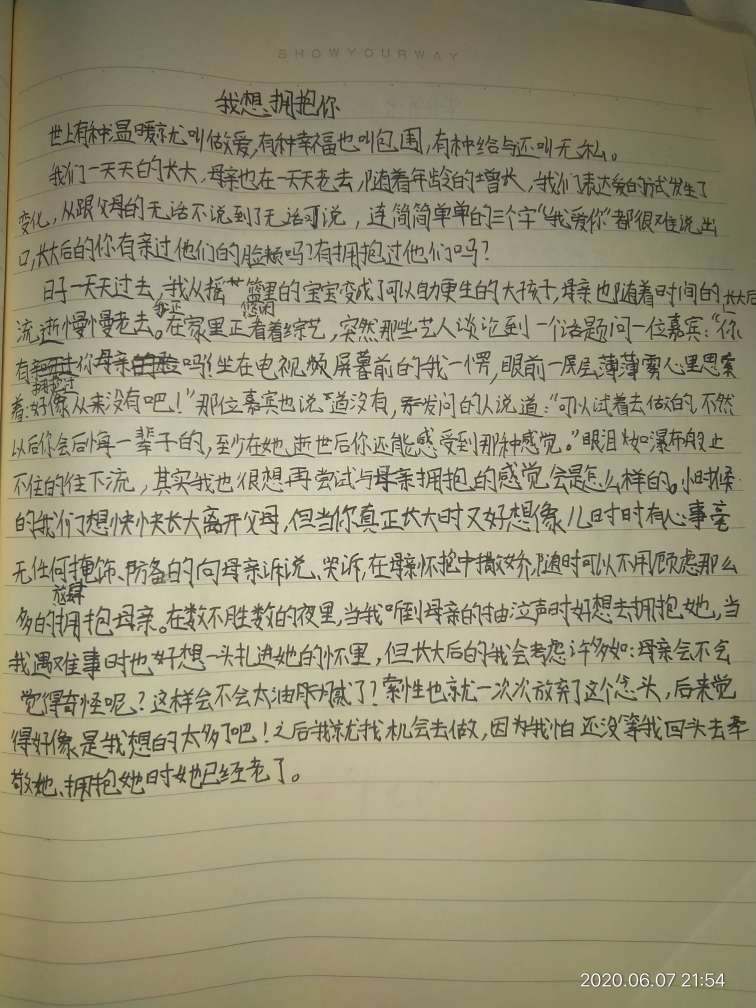 SHOWYOURWAY
我想拥抱你
世上有种温暖就叫做爱,有种幸福也叫包围,有种给与还叫无私。
我们一天天的长大,母亲也在一天天老去,随着年龄的增长,我们表达爱的方式发生了
变化,从跟父母的无话不说到了无话可说,连简简单单的三个字“我爱你”都很难说出
口,长大后的你有亲过他们的脸颊吗?有拥抱过他们吗?
日子一天天过去,我从摇篮里的宝宝变成了可以自助更生的大孩子,母亲也随着时间的
流逝慢慢老去。在家里正看着综艺,突然那些艺人谈论到一个话题问一位嘉宾:“你
我正 悠闲 长大后
有你母亲吗”坐在电视频屏暮前的我一愣,眼前一层层薄薄雾心里思索
拥抱过
着:“好像从来没有吧!”那位嘉宾也说道没有,发问的人说道:“可以试着去做的,不然
以后你会后悔一辈子的,至少在她逝世后你还能感受到那种感觉。”眼泪犹如瀑布般止
不住的往下流,其实我也很想再尝试与母亲拥抱的感觉会是怎么样的。小时候
的我们想快快长大离开父母,但当你真正长大时又好想像儿时时有心事毫
无任何掩饰、防备的向母亲诉说、哭诉,在母亲怀抱中撒娇,随时可以不用顾虑那么
多的拥抱母亲。在数不胜数的夜里,当我听到母亲的抽泣声时好想去拥抱她,当
放肆
我遇难事时也好想一头扎进她的怀里,但长大后的我会考虑许多如:母亲会不会
觉得奇怪呢?这样会不会太油腻了?索性也就一次次放弃了这个念头,后来觉
得好像是我想的太多了吧!之后我就找机会去做,因为我怕还没等我回头去孝
敬她、拥抱她时她已经老了。
2020.06.07 21:54